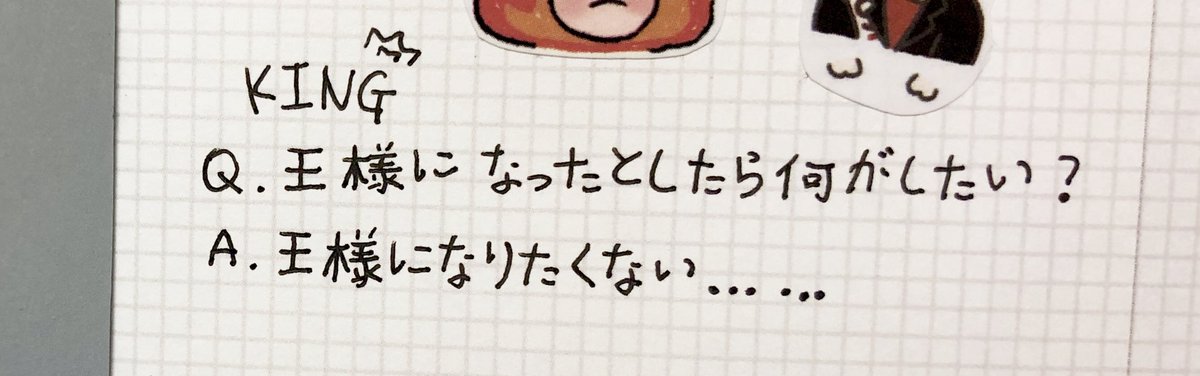 KING
Q.王様になったとしたら何がしたい?
A.王様になりたくない……